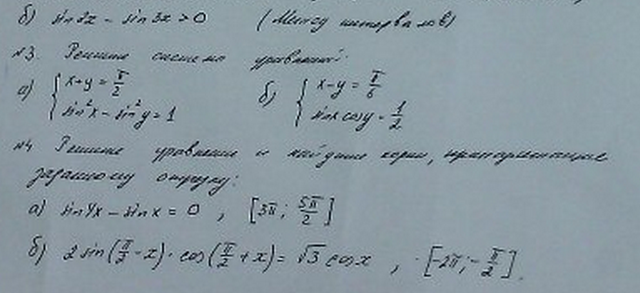 б) sin 2x − sin 3x > 0 (Метод интервалов)
№3. Решите систему уравнений:
а) { x+y = π/2
sin²x − sin²y = 1
б) { x−y = π/6
sinx cosy = 1/2
№4 Решите уравнение и найдите корни, принадлежащие
заданному отрезку:
а) sin4x − sinx = 0 , [3π; 5π/2]
б) 2 sin(π/2 − x) · cos(π/2 + x) = √3 cosx , [−2π; −π/2]